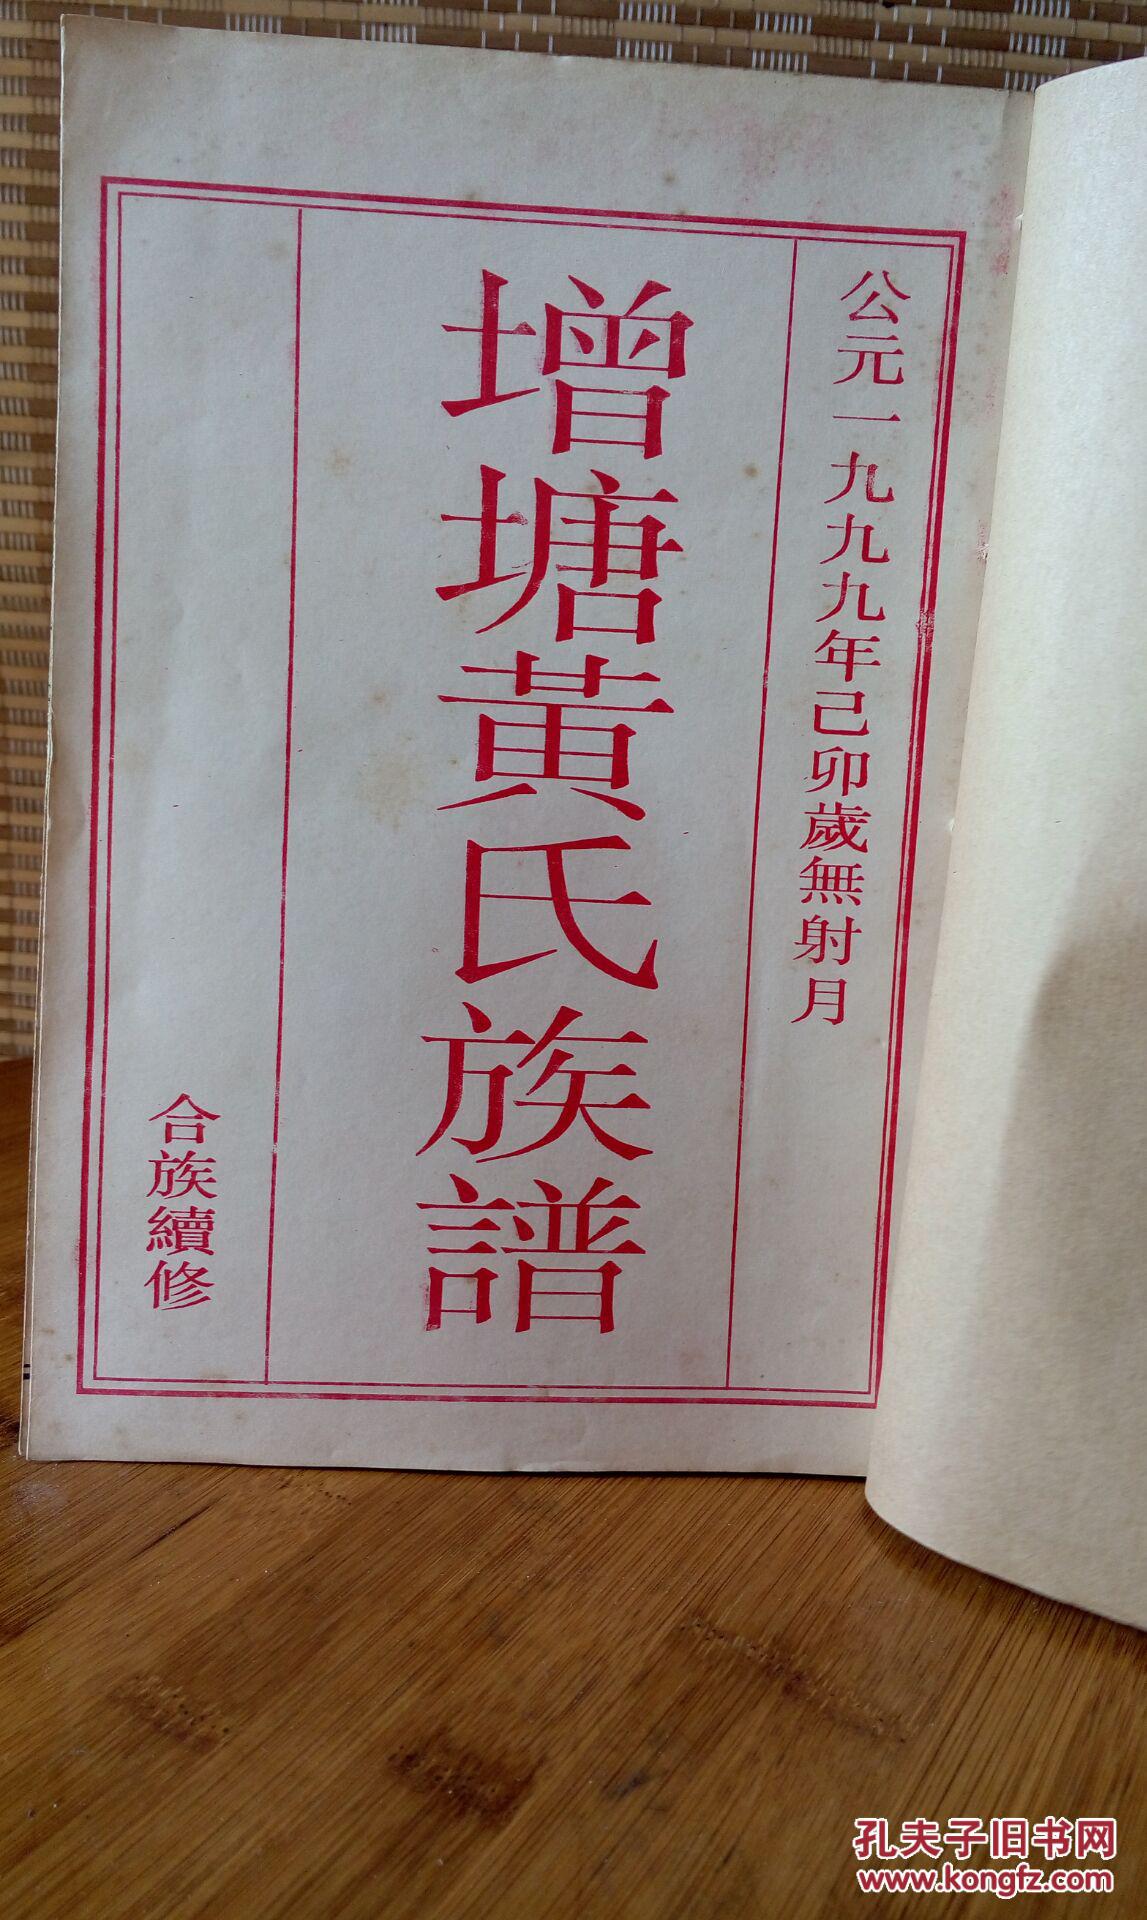 公元一九九九年己卯歲無射月
增塘黃氏族譜
合族續修
孔夫子旧书网
www.kongfz.com